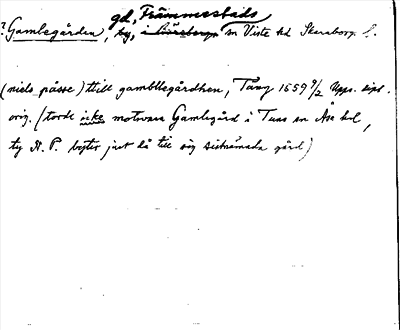 gd, Främmestads
? Gamlegården, by, i Särestads sn Viste hd Skaraborg l.
(niels påsse) thill gambllegårdhen, Täng 1559 9/2 Upps. dipl.
orig. (torde icke motsvara Gamlegård i Tuns sn Åse hd,
ty N. P. byter just då till sig sistnämnda gård)